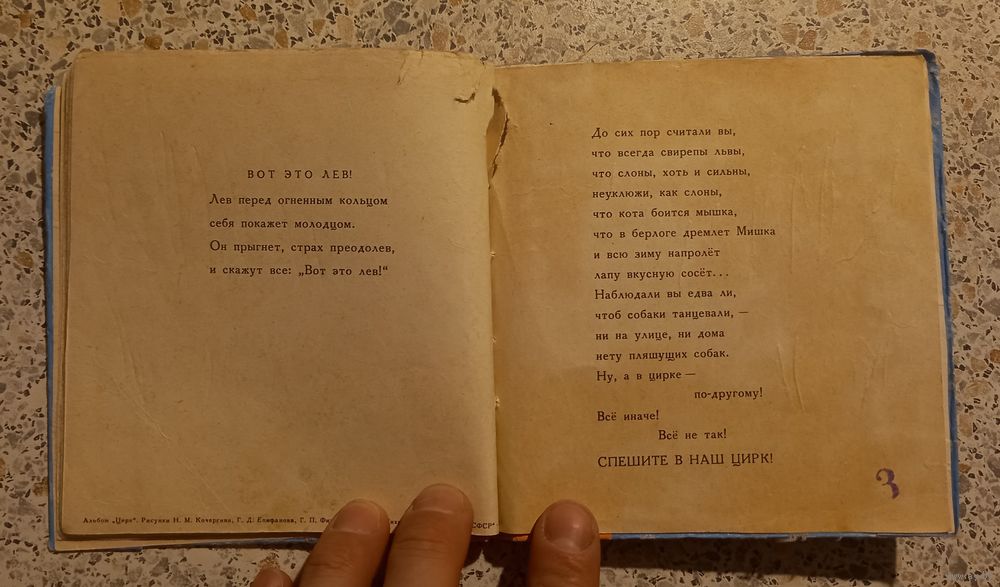 ВОТ ЭТО ЛЕВ!
Лев перед огненным кольцом
себя покажет молодцом.
Он прыгнет, страх преодолев,
и скажут все: „Вот это лев!“
Альбом „Цирк“. Рисунки Н. М. Кочергина, Г. Д. Епифанова, Г. П.
СФСР“
До сих пор считали вы,
что всегда свирепы львы,
что слоны, хоть и сильны,
неуклюжи, как слоны,
что кота боится мышка,
что в берлоге дремлет Мишка
и всю зиму напролёт
лапу вкусную сосёт...
Наблюдали вы едва ли,
чтоб собаки танцевали, —
ни на улице, ни дома
нету пляшущих собак.
Ну, а в цирке —
по-другому!
Всё иначе!
Всё не так!
СПЕШИТЕ В НАШ ЦИРК!
3